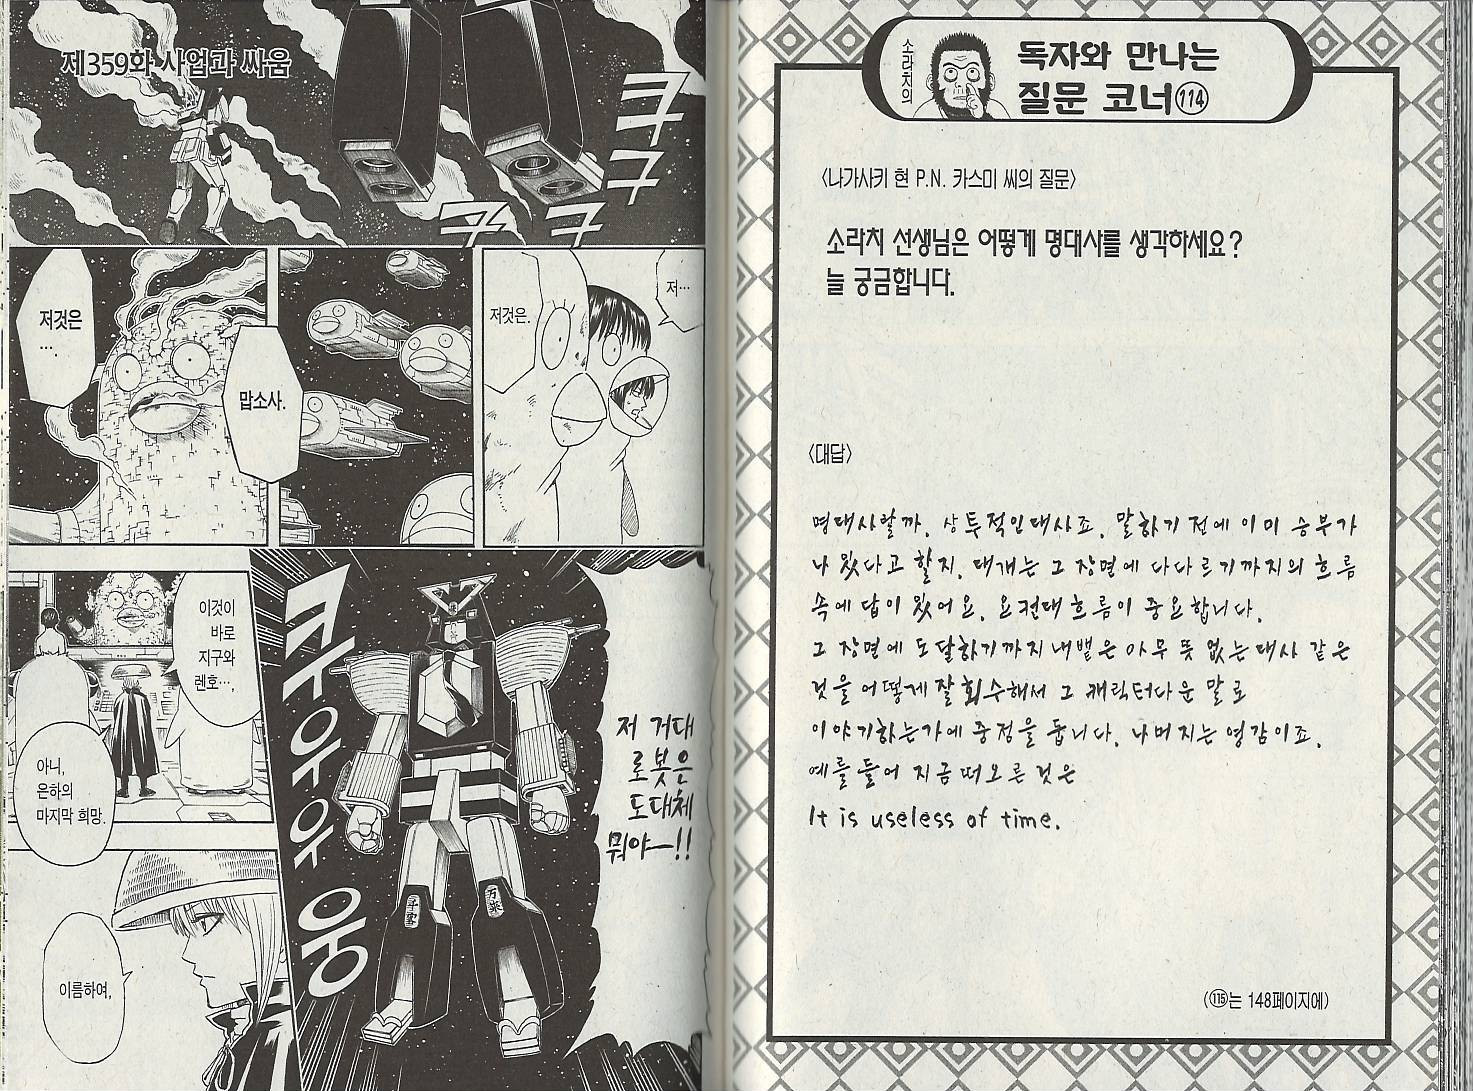 제359화 사업과 싸움
쿠구
구
쿠구구
저…
저것은.
맙소사.
저것은
….
저 거대
로봇은
도대체
뭐야—!!
쿠우우우웅
이것이
바로
지구와
렌호…,
아니,
은하의
마지막 희망.
이름하여,
소라치의
독자와 만나는
질문 코너 114
〈나가사키 현 P.N. 카스미 씨의 질문〉
소라치 선생님은 어떻게 명대사를 생각하세요?
늘 궁금합니다.
〈대답〉
명대사랄까, 상투적인대사죠. 말하기 전에 이미 승부가
나 있다고 할지. 대개는 그 장면에 다다르기까지의 흐름
속에 답이 있어요. 요컨대 흐름이 중요합니다.
그 장면에 도달하기까지 내뱉은 아무 뜻 없는 대사 같은
것을 어떻게 잘 회수해서 그 캐릭터다운 말로
이야기하는가에 중점을 둡니다. 나머지는 영감이죠.
예를 들어 지금 떠오른 것은
It is useless of time.
(115는 148페이지에)